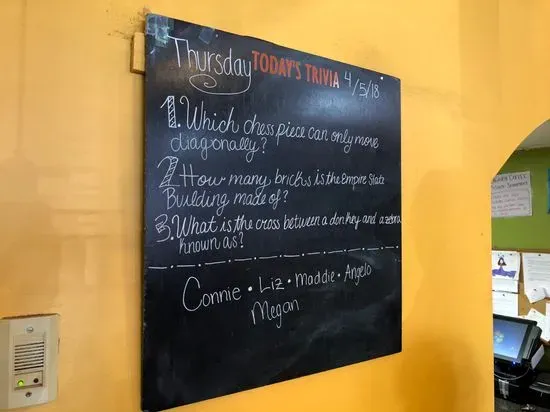 Thursday TODAY'S TRIVIA 4/5/18
1. Which chess piece can only move
diagonally?
2 How many bricks is the Empire State
Building made of?
3. What is the cross between a donkey and a zebra
known as?
Connie • Liz • Maddie • Angelo
Megan